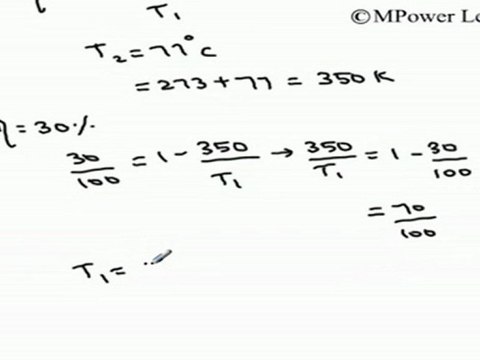 ©MPower Le
T₁
T₂ = 77°C
= 273 + 77 = 350 K
η = 30%
30/100 = 1 - 350/T₁ → 350/T₁ = 1 - 30/100
= 70/100
T₁ =